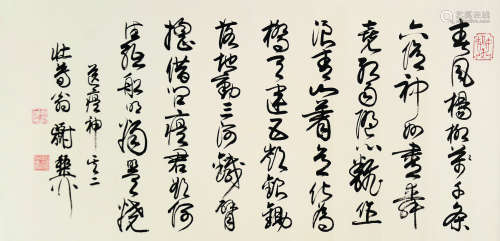 春風楊柳萬千條
六億神州盡舜
堯紅雨隨心翻作
浪青山著意化為
橋天連五嶺銀鋤
落地動三河鐵臂
搖借問瘟君欲何
往紙船明燭照天燒
送瘟神其二
壯暮翁謝稚柳